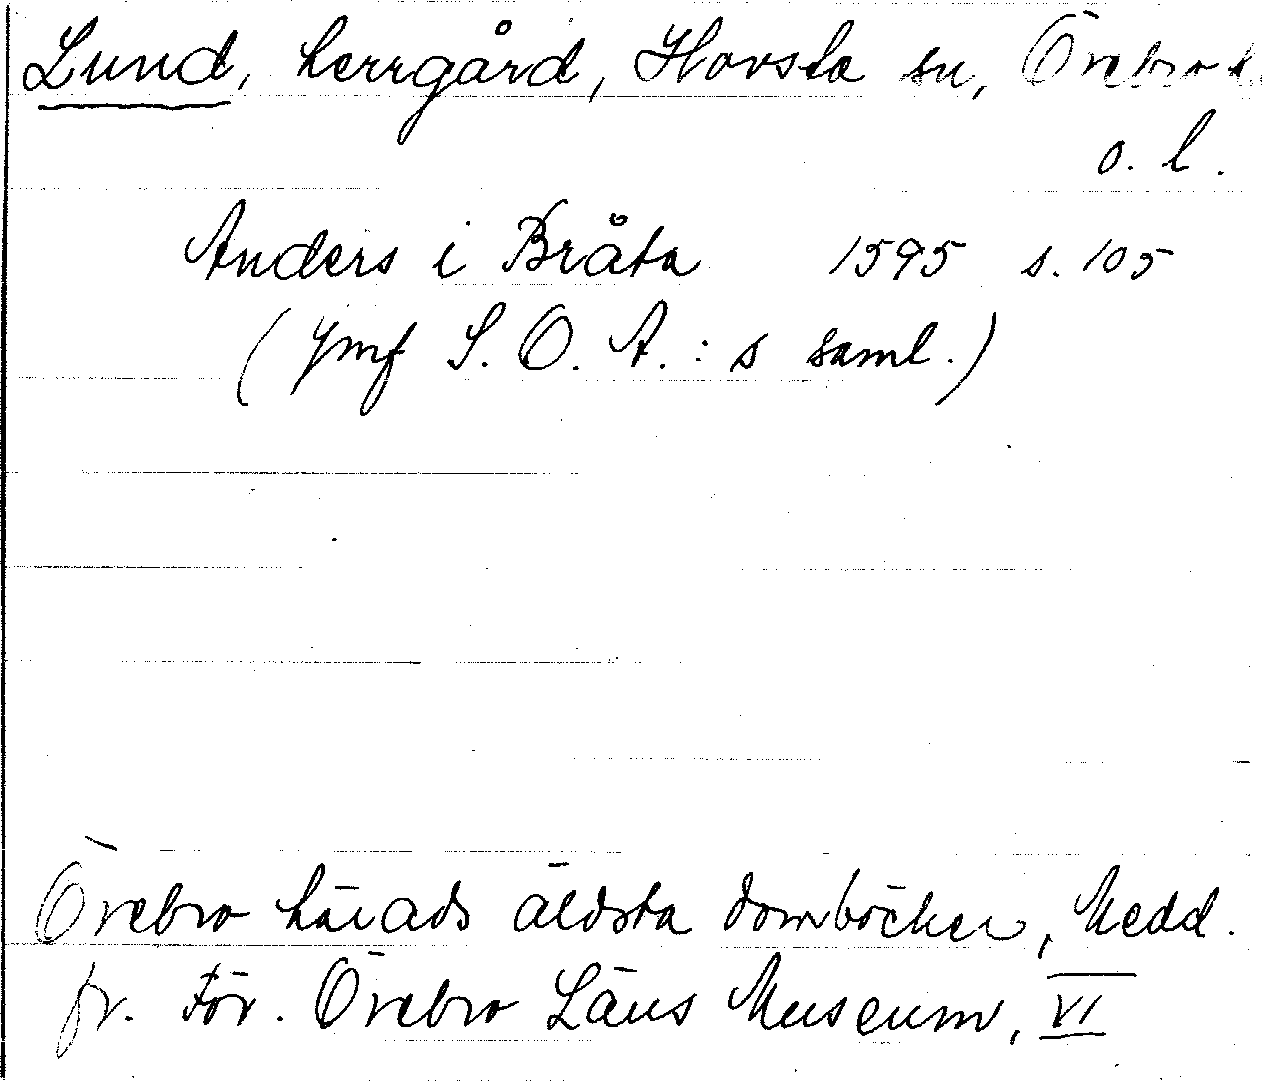 Lund, herrgård, Hovsta sn, Örebro h.
o. l.
Anders i Bråta 1595 s. 105
(jmf S. O. A. : s saml.)
Örebro härads äldsta domböcker, Medd.
fr. För. Örebro Läns Museum, VI